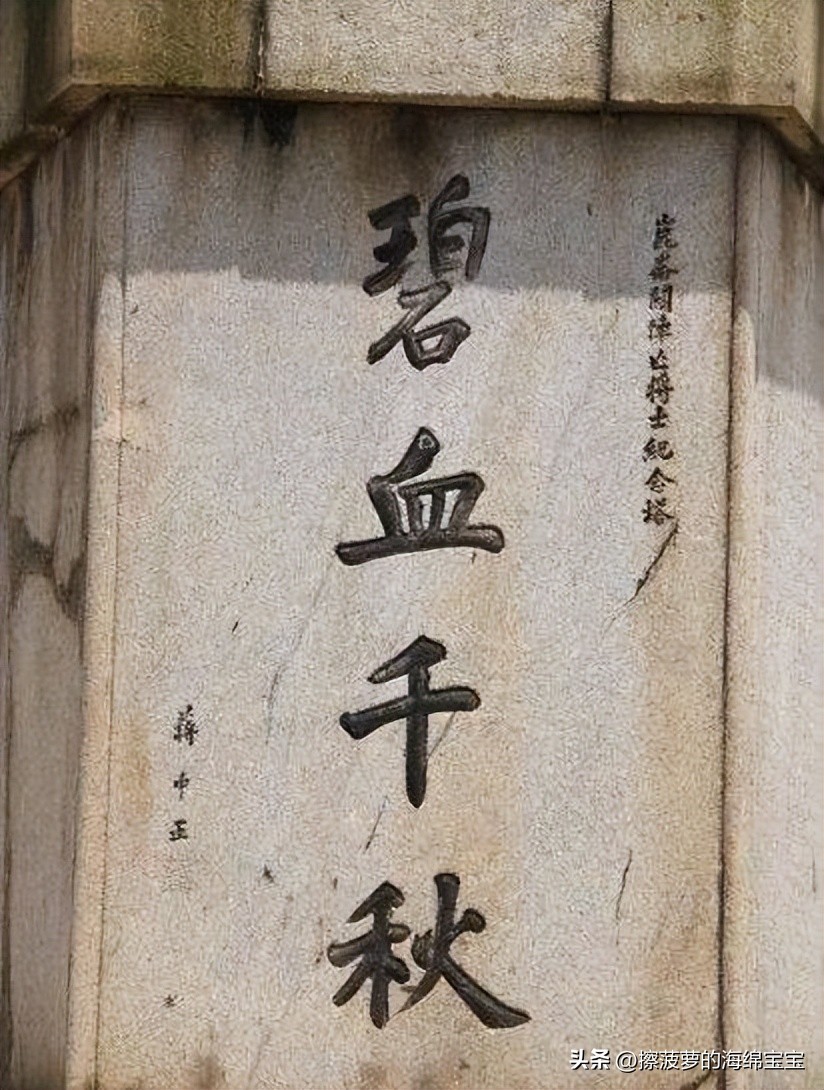 崑崙關陣亡將士紀念塔
碧血千秋
蔣中正
头条 @擦菠萝的海绵宝宝